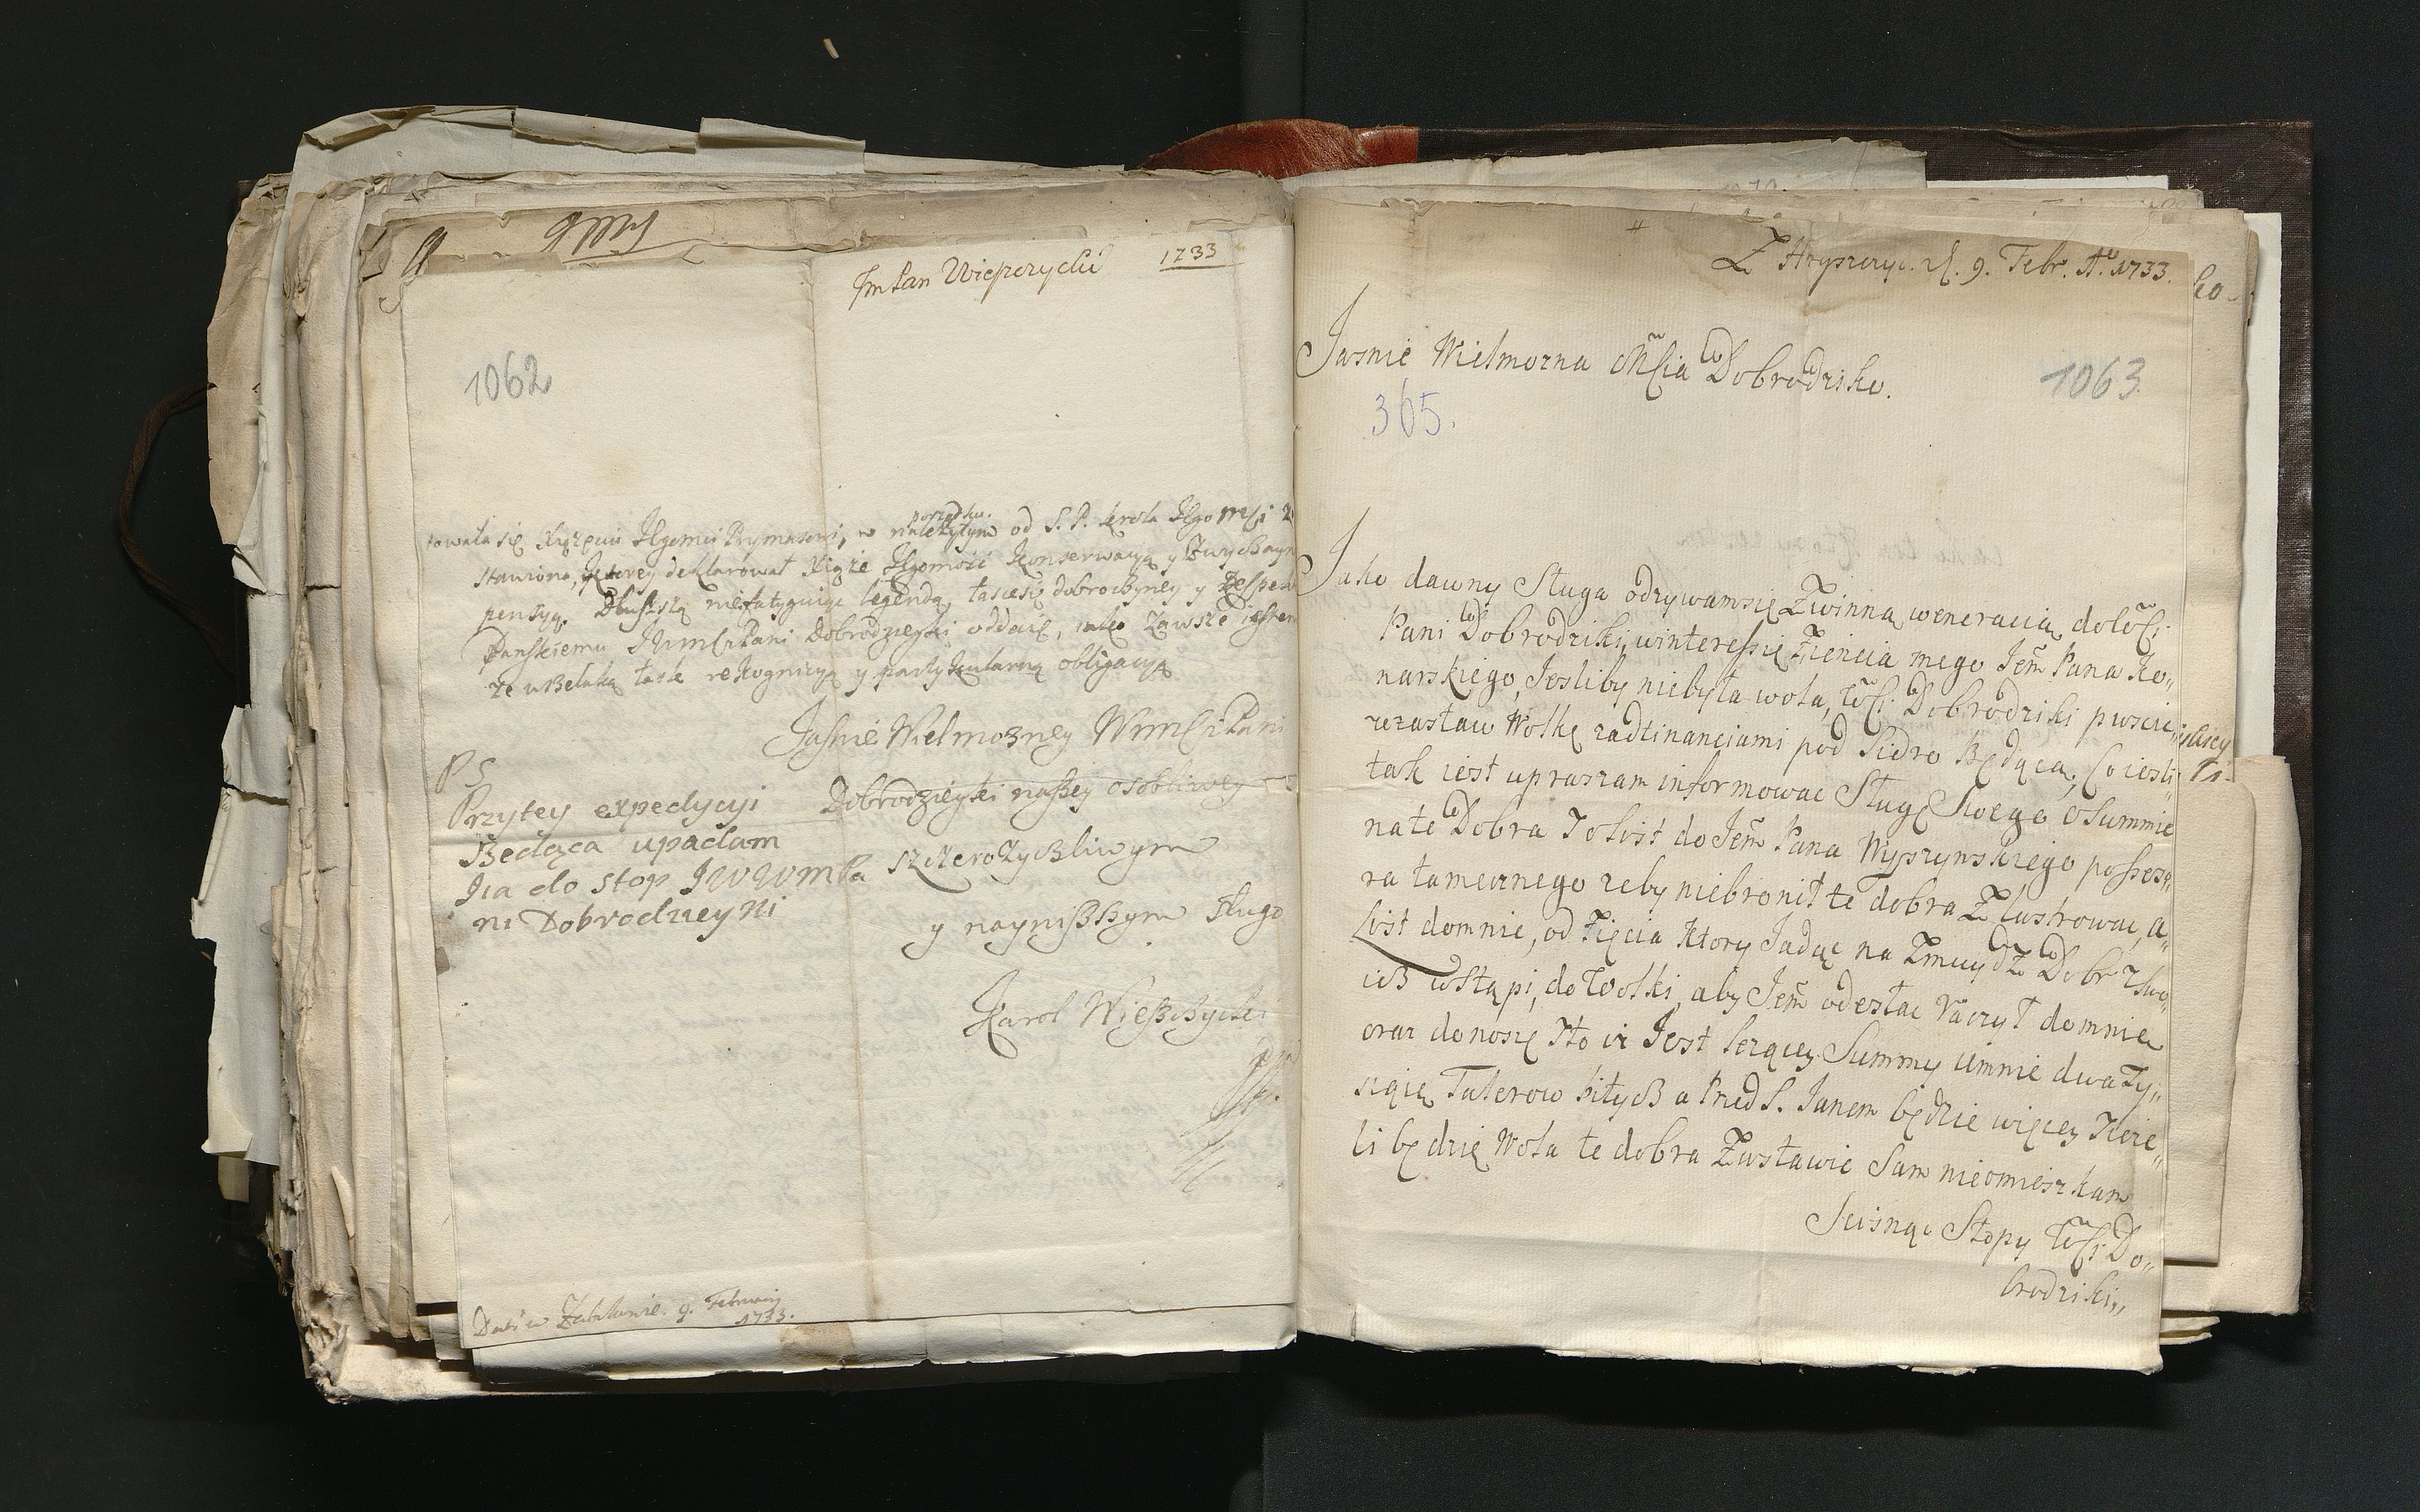 Im Pan Wieszczycki 1733
1062
towała się Xiążęciu Jegomci Prymasowi, w należytym porządku. od S. P. Krola Jego Mci
stawiona, ktorey deklarował Xiąże Jegomość konserwacyą y zwyczayn
pensyą. Dłuższą niefatyguiąc legendą, łascesię dobroczynney y
Panskiemu JWmści Pani Dobrodzieyki oddaię, iako zawsze iestem
ze wszelaką łask rekognicyą y partykularną obligacyą
Jaśnie Wielmozney Wmści Pani
Dobrodzieyki naszey osobliwey
szczerozyczliwym
y nayniższym sługą
Karol Wieszczycki
PS
Przytey expedycyi
Będąca upadam
Jia do stop JWWMPa
ni Dobrodzieyki
Dati w Zabłuniu. 9. Februarij
1733.
Z Hryszczyc. d. 9. Febr. Aº 1733.
Jasnie Wielmozna Mścia Dobrodziko.
1063
365.
Jako dawny Sługa odzywamsię Zwinną weneracią do Wści
Pani Dobrodziki, winteressię Zieńcia mego Jem Pana Ko„
narskiego, Jesliby niebyła wola, Wści Dobrodziki puscic„
wzastaw Wolkę zadtinanciami pod Sidrą Będącą, Co iesli„
tak iest upraszam informowac Sługę Swego o Summie
nate Dobra y o List do Jem Pana Wyszynskiego posseso„
ra tamecznego zeby niebronił te dobra Zlustrowac, a„
List domnie, od Zięcia ktory Jadąc na Zmuydz Dobr Two„
ich wstąpi, do Wolki, aby Jem odesłac raczył domnie
oraz donoszę Ito iz Jest lezącey Summy umnie dwa Ty„
siące Talerow bitych a Przed S. Janem będzie więcey Jeze„
li będzię Wola te dobra Zastawic Sam nieomieszkam
Scisnąc Stopy Wści Do„
brodziki„